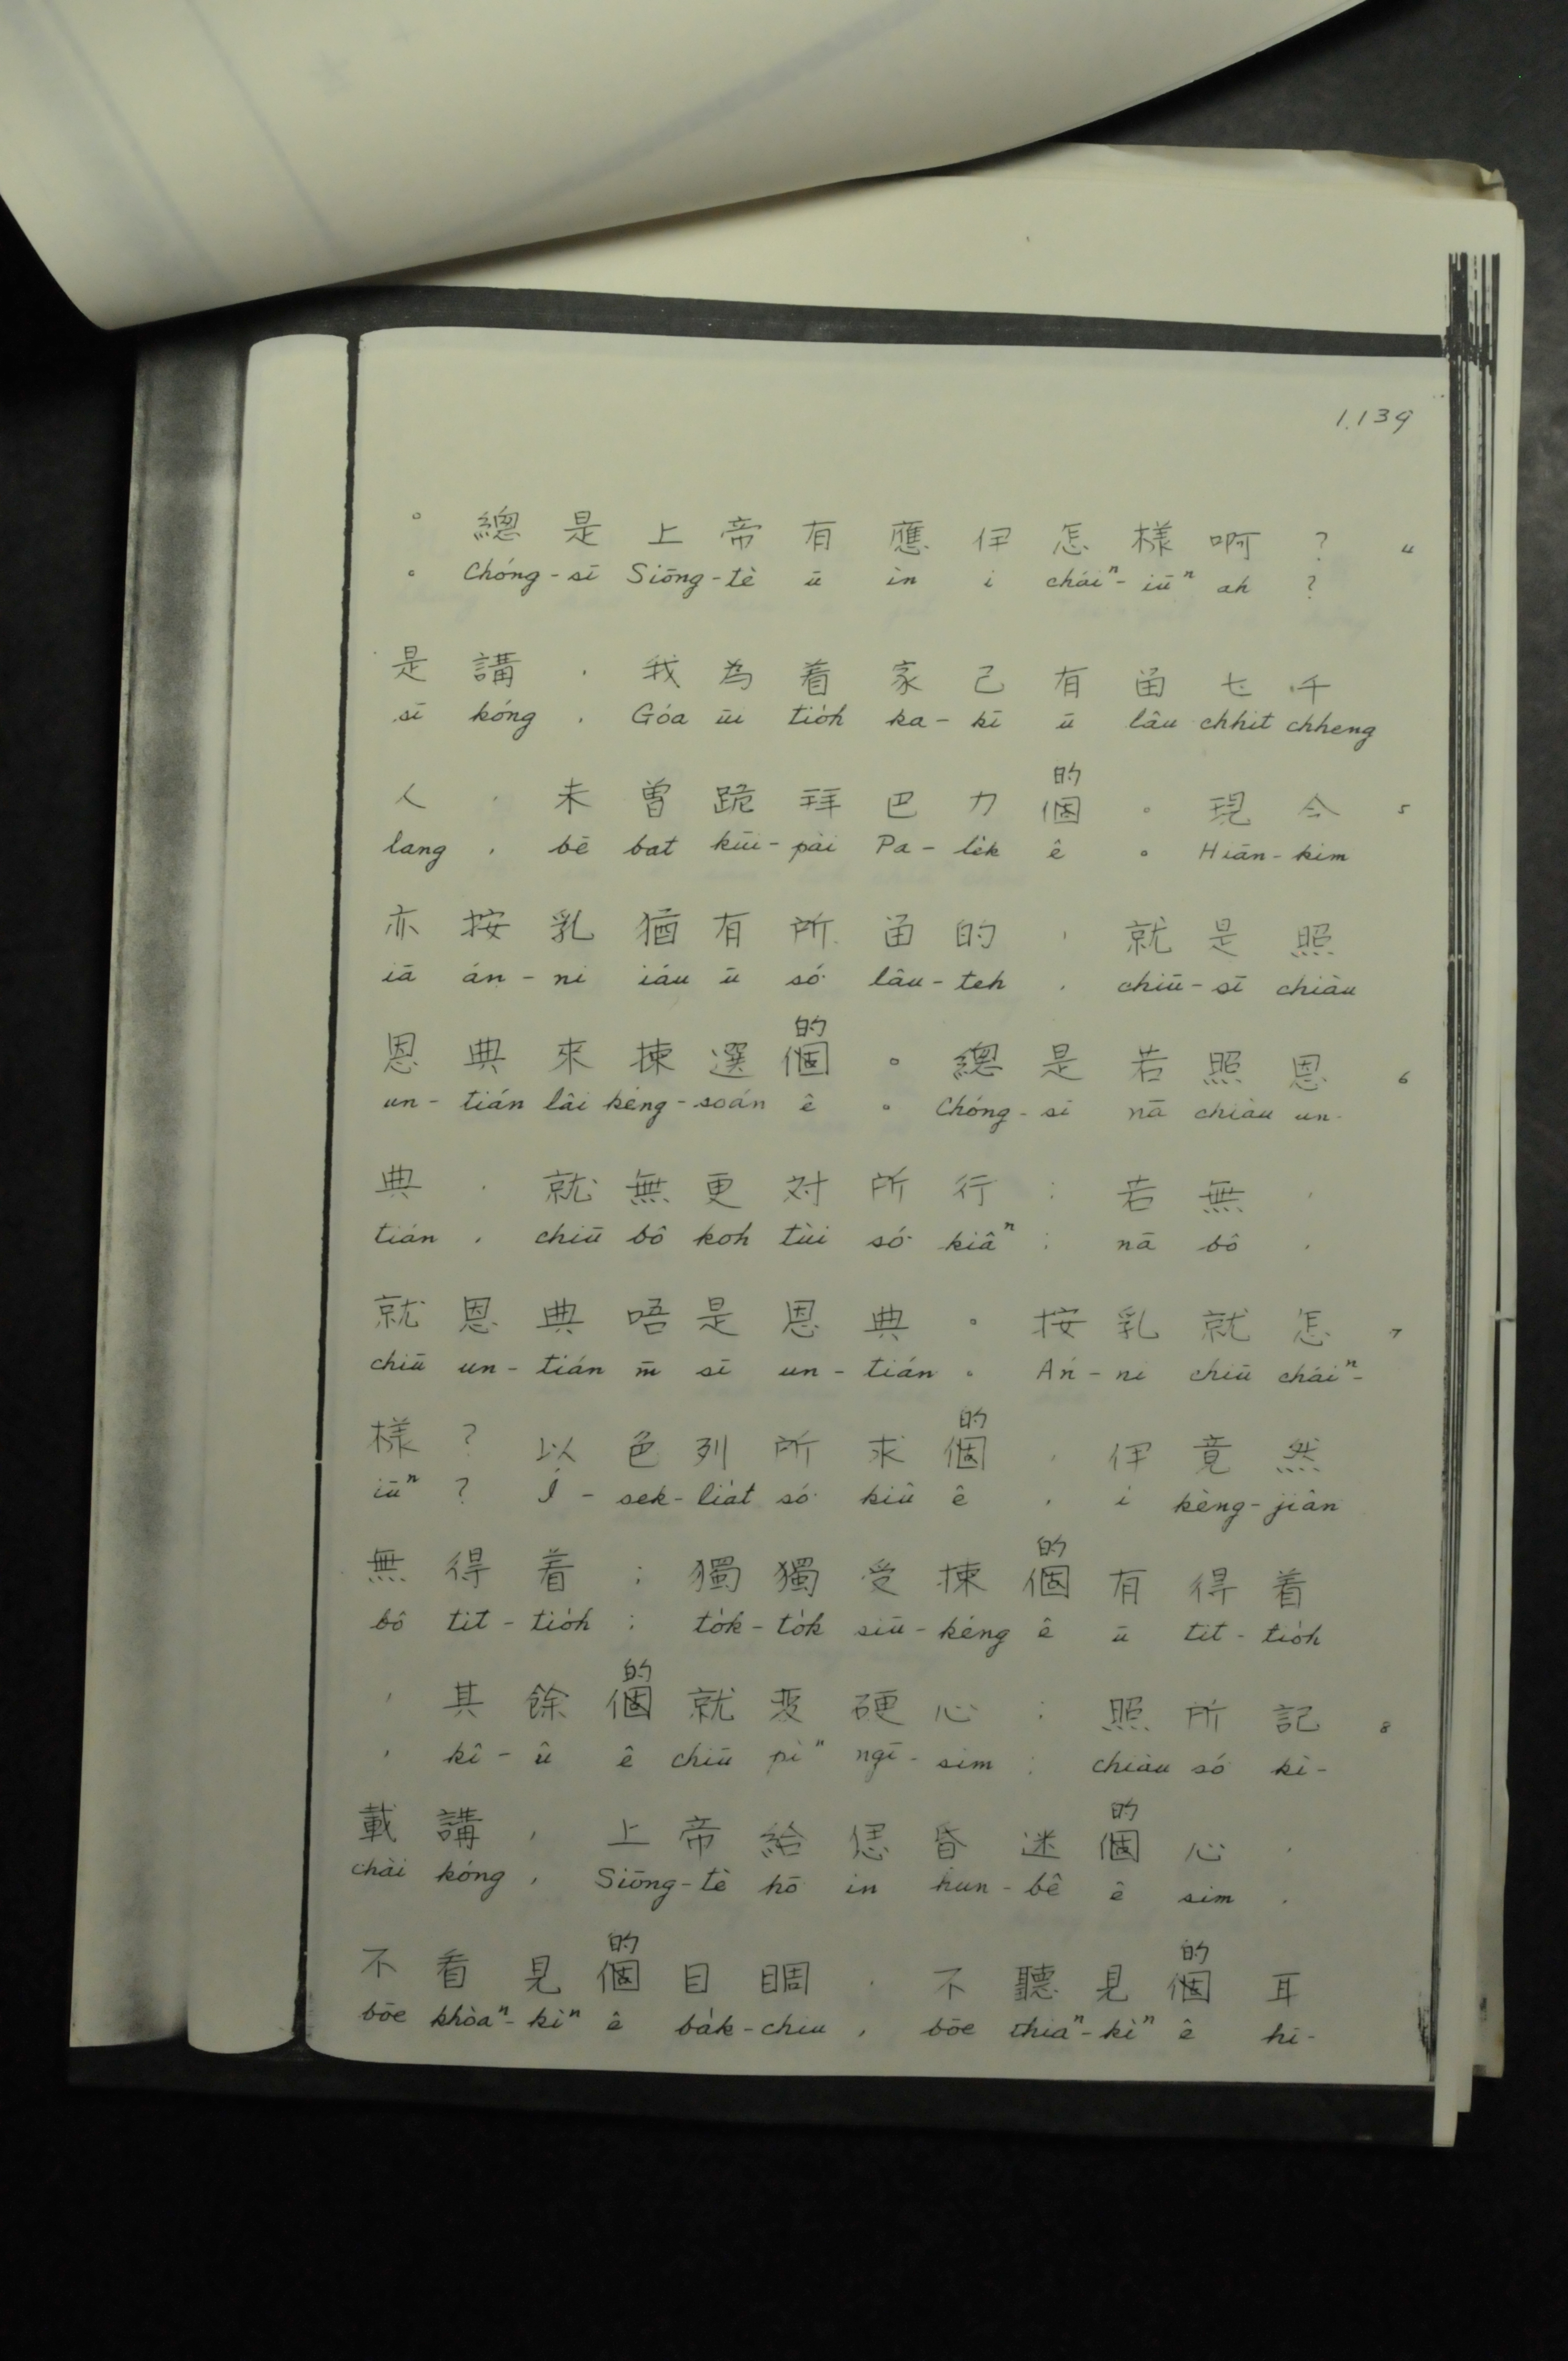 1.139
。總是上帝有應伊怎樣啊? 4
。 Chóng-sī Siōng-tè ū ìn i cháiⁿ-iūⁿ ah ?
是講,我為着家己有留七千
sī kóng , Góa ūi tio̍h ka-kī ū lâu chhit chheng
的
人,未曾跪拜巴力個。現今 5
lang , bē bat kūi-pài Pa-le̍k ê 。 Hiān-kim
亦按乳猶有所留的,就是照
iā án-ni iáu ū só͘ lâu-teh , chiū-sī chiàu
的
恩典來揀選個。總是若照恩 6
un-tián lâi kéng-soán ê 。 Chóng-sī nā chiàu un-
典,就無更对所行;若無,
tián , chiū bô koh tùi só͘ kiâⁿ ; nā bô ,
就恩典唔是恩典。按乳就怎 7
chiū un-tián m̄ sī un-tián 。 Án-ni chiū cháiⁿ-
的
樣?以色列所求個,伊竟然
iūⁿ ? Í-sek-lia̍t só͘ kiû ê , i kèng-jiân
的
無得着;獨獨受揀個有得着
bô tit-tio̍h ; to̍k-to̍k siū-kéng ê ū tit-tio̍h
的
,其餘個就変硬心;照所記 8
, kî-û ê chiū pìⁿ ngī-sim ; chiàu só͘ kì-
的
載講,上帝給𪜶昏迷個心,
chài kóng , Siōng-tè hō͘ in hun-bê ê sim ,
的 的
不看見個目睭,不聽見個耳
bōe khòaⁿ-kìⁿ ê ba̍k-chiu , bōe thiaⁿ-kìⁿ ê hī-